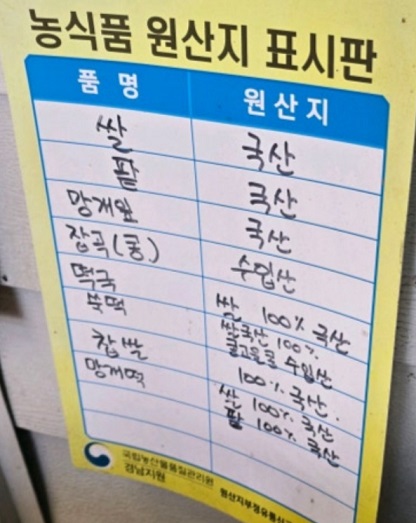 농식품 원산지 표시판
품 명 원 산 지
쌀 국산
팥 국산
망개잎 국산
잡곡(콩) 수입산
떡국 쌀 100% 국산
쑥떡 쌀국산 100%.
콩고물콩 수입산
찹쌀 100% 국산.
망개떡 쌀 100% 국산
팥 100% 국산
국립농산물품질관리원
경남지원
원산지부정유통신